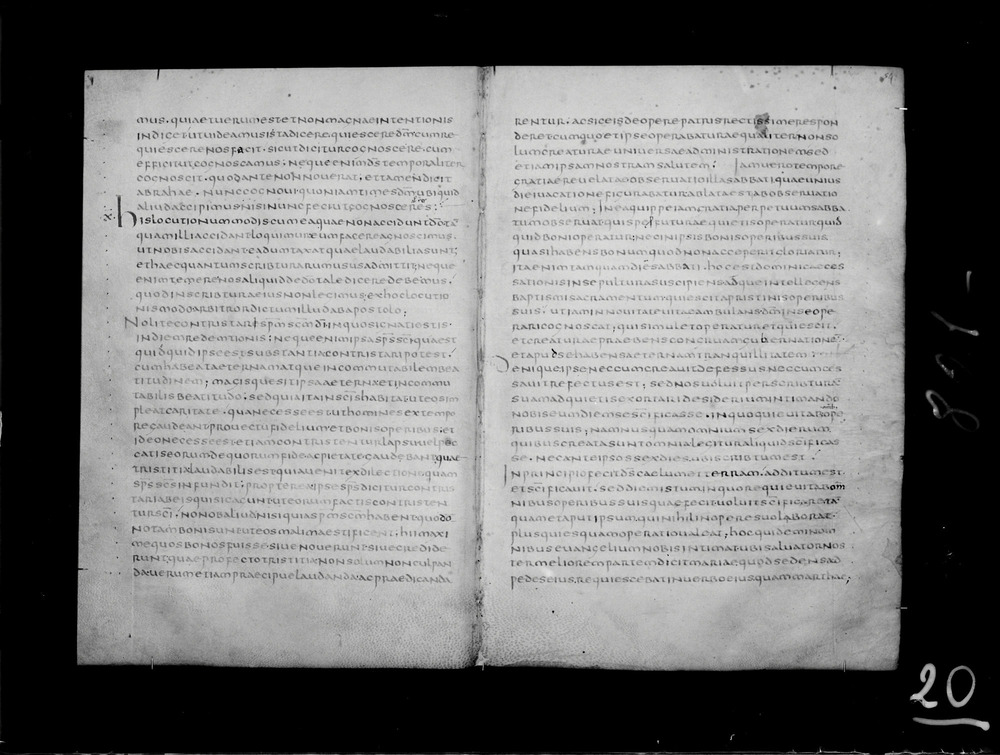 mus. quiaetuerumestetnonmagnaeintentionis
indicetutuideamussistadicerequiesceredm̄cumre
quiescerenosfacit. sicutdiciturcognoscere. cum
efficiturtcognoscamus. nequeenimds̄temporaliter
cognoscit. quodantenonnouerat. ettamendicit
abrahae. nunccognouiquoniamtimesdm̄ubiquid
aliudaccipimusnisinuncfecitcognosceres:
x. hislocutionummodiscumeaquaenonacciduntdō
quamilliaccidantloquimurxeumfacereagnoscimus.
utnobisaccidanteadumtaxatquaelaudabiliasunt;
ethaecquantumscribturarumususadmittit; neque
enimtemerenosaliquiddedōtalediceredebemus.
quodinscribturaeiusnonlegimus; exhoclocutio
nismodoarbitrordictumilludabapostolo;
Nolitecontristarispm̄scm̄dīinquosignatiestis.
indiemredemtionis; nequeenimipsasps̄scs̄quaest
quidquidipseestsubstantiacontristaripotest.
cumhabeataeternamatqueincommutabilembea
titudinem; magisquesitipsaaeternaetincommu
tabilisbeatitudo. sedquiaitainscīshabitatuteosim
pleatcaritate. quanecesseestuthominesextempo
regaudeantprouectufideliumetbonisoperibus. et
ideonecesseestetiamcontristenturlapsuuelpec
catiseorumdequorumfideacpietategaudebant. quae
tristitialaudabilisestquiauenitexdilectionequam
sps̄scs̄infundit. propterea ipsesps̄diciturcontris
tariabeisquisicaguntuteorumfactiscontristen
turscī. nonobaliudnisiquiaspm̄scm̄habentquodo
notambonisuntuteosmalimaestificent. hi maxi
mequosbonosfuissesiuenoueruntsiuecredide
runt; quaeprofectotristitianonsolumnonculpan
da. uerumetiampraecipuelaudandaacpraedicanda
rentur. acsiceisdeoperepatrisrectissimerespon
deretcumquoetipseoperabaturaequaliternonso
lumcreaturaeuniversaeadministrationemsed
etiamipsamnostramsalutem: Iamuerotempore
gratiaereuelataobseruatioillasabbatiquaeunius
dieiuacationefigurabaturablataestabobseruatio
nefidelium; Ineaquippeiamgratiaperpetuumsabba
tumobseruatquispefuturaequietisoperaturquid
quidbonioperatur; necinipsisbonisoperibussuis
quasihabensbonumquodnonacceperitgloriatur;
itaenimtamquamdiēsabbati. hocestdominicaeces
sationisinsepulturasuscipiensadqueintellegens
baptismisacramentumquiescitapristinisoperibus
suis. utiaminnouitateuitaeambulansdm̄inseope
raricognoscat; quisimuletoperaturetquiescit.
etcreaturaepraebenscongruamgubernationē.
etapudsehabensaeternamtranquillitatem:
Deniqueipseneccumcreauitdefessusneccumces
sauitrefectusest; sednosuoluitperscribturā
suamadquietisexortaridesideriumintimando
nobiseumdiemscīficasse. inquoquieuitabope
ribussuis; namnusquamomniumsexdierum
quibuscreatasuntomnialegituraliquidscīficas
se. necanteipsossexdiesubiscribtumest.
Inprincipiofecitds̄caelumetterram. additumest.
etscīficauit. seddiemistuminquorequieuitabom
nibusoperibussuisquaefecit. uoluitscīficare
quametaputipsum. quinihilinoperesuolaborat.
plusquiesquamoperatioualeat; hocquideminom
nibuseuangeliumnobisintimatubisaluatornos
termelioremparteṁdicitmariaequodsedensad
pedeseius. requiescebatinuerboeiusquammarthae;
20